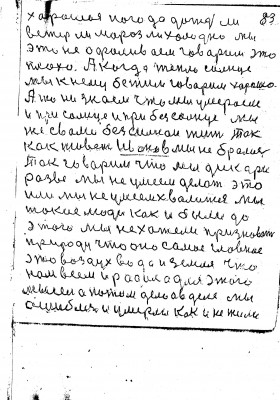 хорошая погода дождь ли 83.
ветер ли мороз ли холодно мы
это не одолив аем говорим это
плохо. А когда тепло солнце
мы к нему бежим говорим хорошо.
А то ни знаем что мы умераем
и при солнце и при без солнце мы
же с вами без силком жить так
как живет Ивонов мы не брались
так говорим что мы дикари
разве мы не умеем делат это
или мы не умеем хвалится мы
токие люди как и были до
этого мы не хатели признават
природу что оно самое главное
это воздух вода и земля что
нам всем и
мысли а потом дело в деле мы
ошиблись и умерли как и не жили